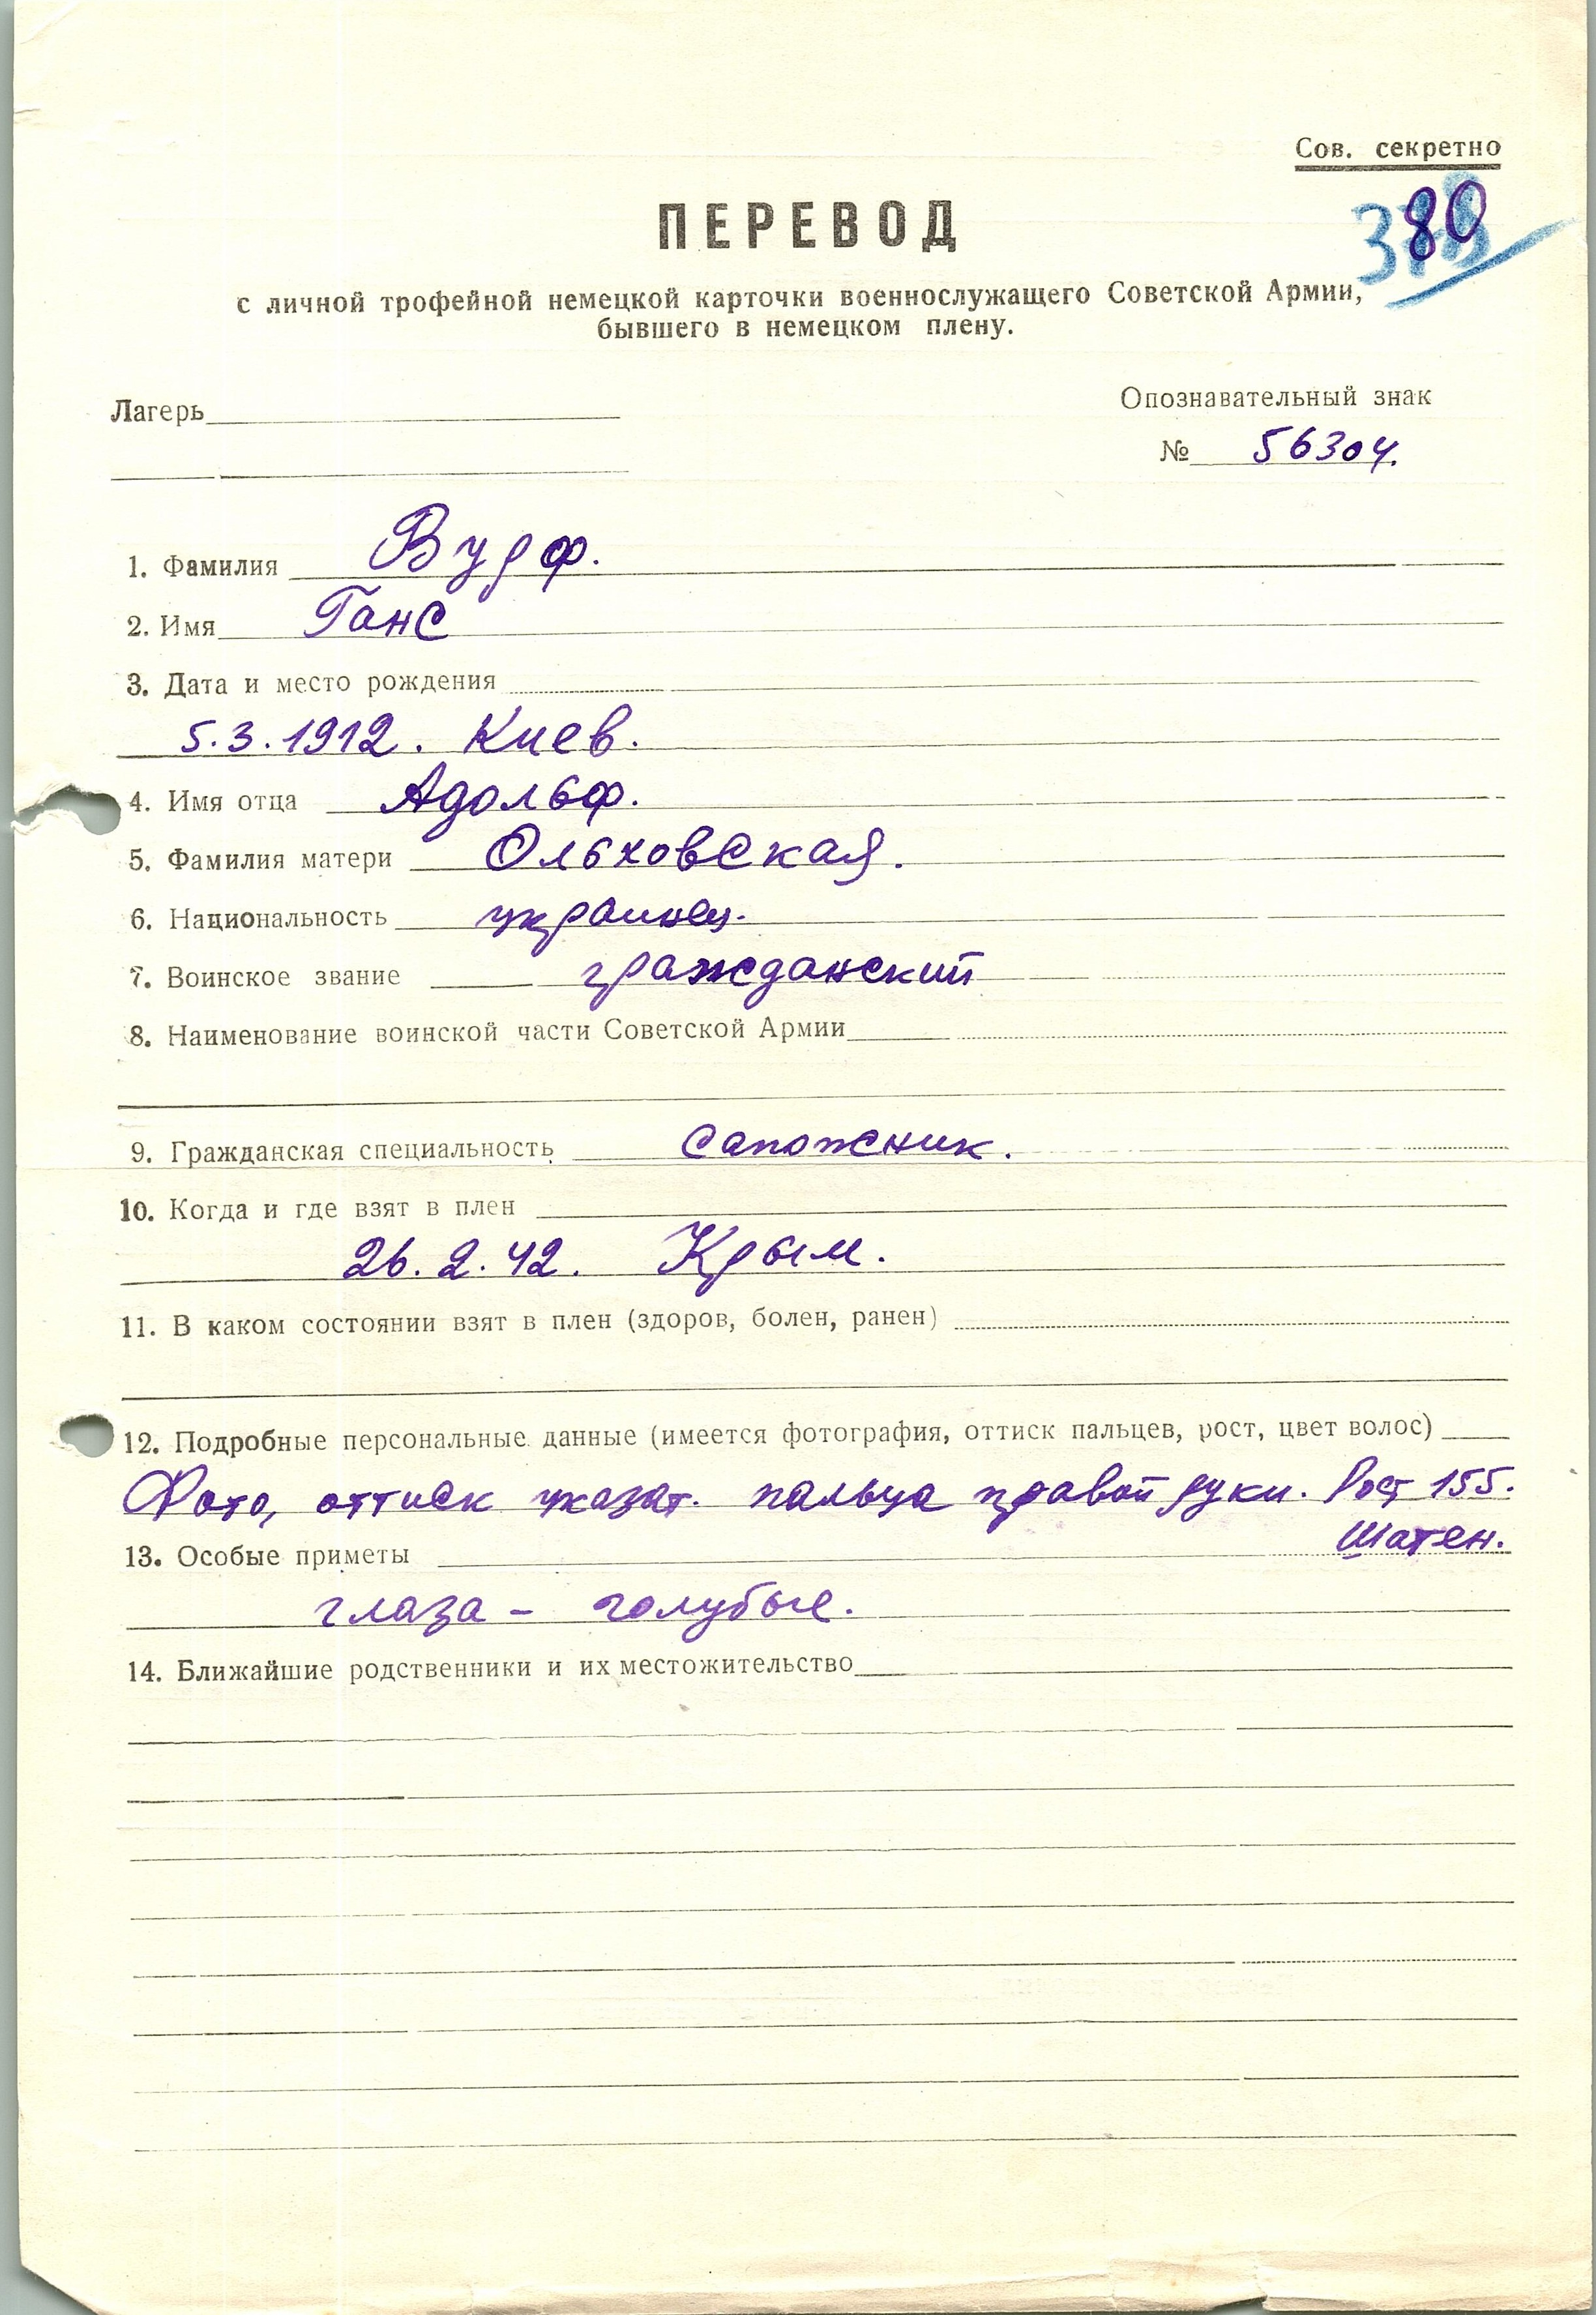 Сов. секретно
80
ПЕРЕВОД
с личной трофейной немецкой карточки военнослужащего Советской Армии,
бывшего в немецком плену.
Лагерь
Опознавательный знак
№ 56304.
1. Фамилия Вурф.
2. Имя Ганс
3. Дата и место рождения
5.3.1912. Киев.
4. Имя отца Адольф.
5. Фамилия матери Ольховская.
6. Национальность украинец.
7. Воинское звание гражданский
8. Наименование воинской части Советской Армии
9. Гражданская специальность сапожник.
10. Когда и где взят в плен
26.2.42. Крым.
11. В каком состоянии взят в плен (здоров, болен, ранен)
12. Подробные персональные данные (имеется фотография, оттиск пальцев, рост, цвет волос)
Фото, оттиск указат. пальца правой руки. Рост 155.
Шатен.
13. Особые приметы
глаза - голубые.
14. Ближайшие родственники и их местожительство